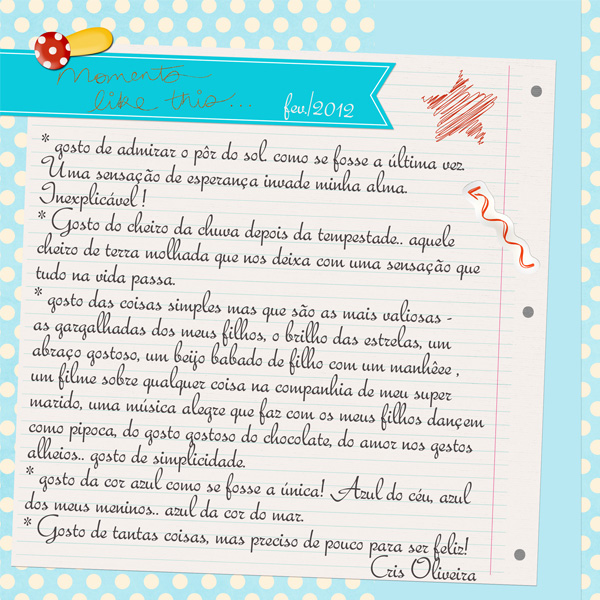 Momento
like this...
fev./2012
* gosto de admirar o pôr do sol. como se fosse a última vez.
Uma sensação de esperança invade minha alma.
Inexplicável !
* Gosto do cheiro da chuva depois da tempestade.. aquele
cheiro de terra molhada que nos deixa com uma sensação que
tudo na vida passa.
* gosto das coisas simples mas que são as mais valiosas -
as gargalhadas dos meus filhos, o brilho das estrelas, um
abraço gostoso, um beijo babado de filho com um manhêee ,
um filme sobre qualquer coisa na companhia de meu super
marido, uma música alegre que faz com os meus filhos dançem
como pipoca, do gosto gostoso do chocolate, do amor nos gestos
alheios.. gosto de simplicidade.
* gosto da cor azul como se fosse a única! Azul do céu, azul
dos meus meninos.. azul da cor do mar.
* Gosto de tantas coisas, mas preciso de pouco para ser feliz!
Cris Oliveira